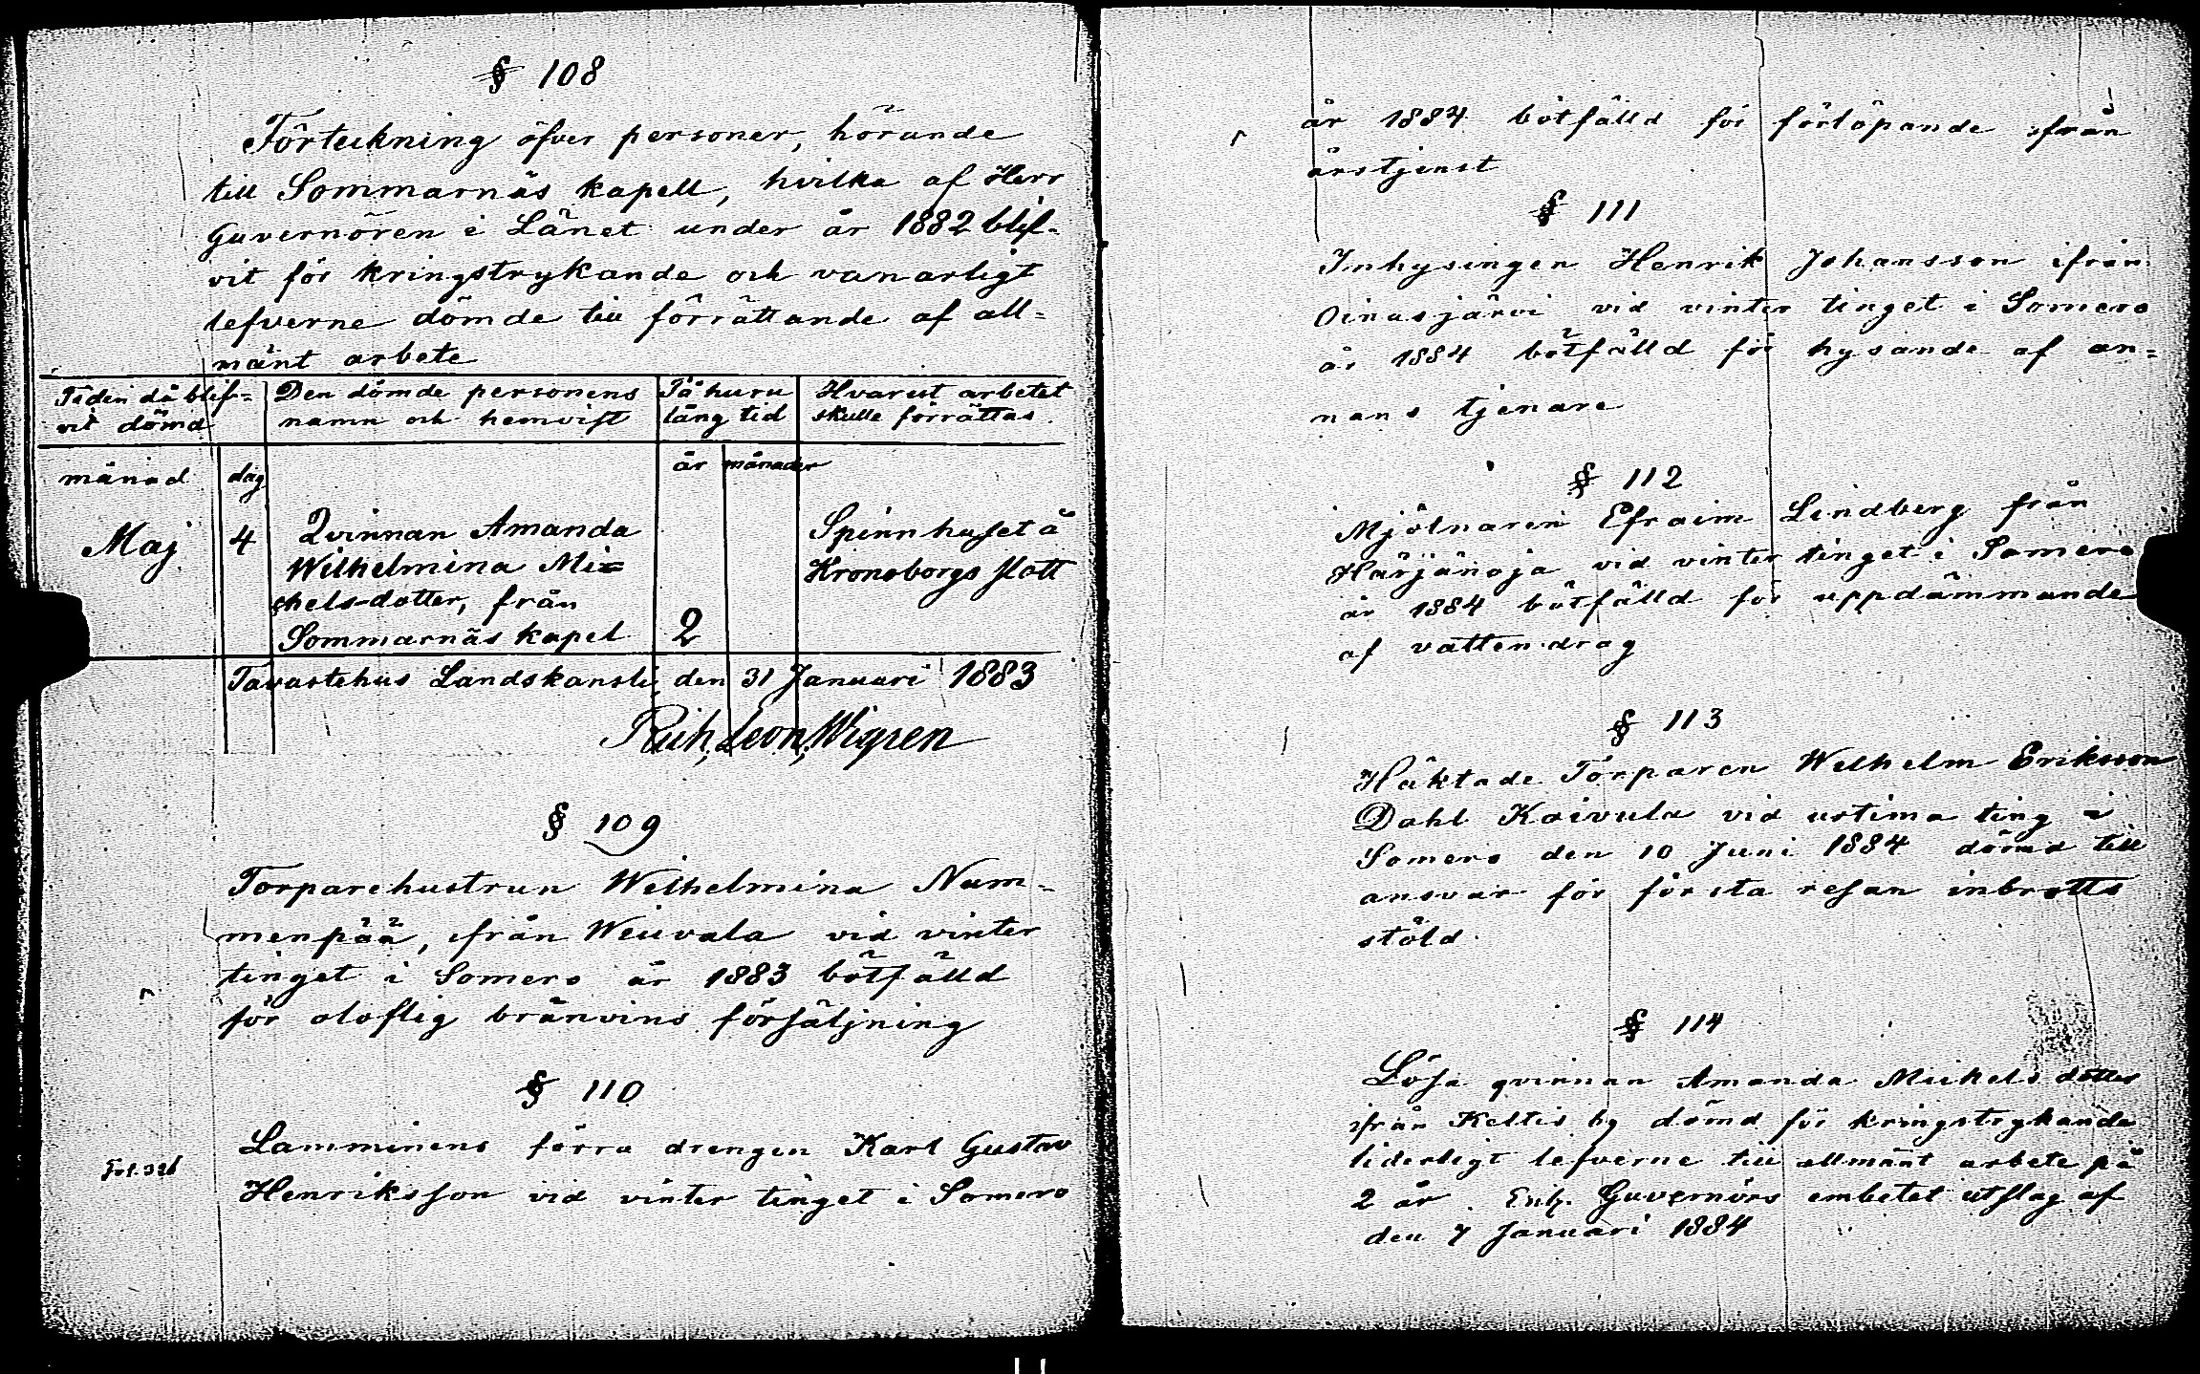 § 108
Förteckning öfver personer, hörande
till Sommarnäs kapell, hvilka af Herr
Guvernören i Länet under år 1882 blif-
vit för kringstrykande och vanartigt
lefverne dömde till förrättande af all-
mänt arbete
Tiden då blif- Den dömde personens På huru Hvarest arbetet
vit dömd namn och hemvist lång tid skulle förrättas.
månad dag år månader
Maj 4 Qvinnan Amanda Spinnhuset å
Wilhelmina Mi= Kronoborgs slott
chels-dotter, från
Sommarnäs kapel 2
Tavastehus Landskansli, den 31 Januari 1883
Leon, Wigren
§ 109
Torparehustrun Wilhelmina Num-
menpää, ifrån Weuvala vid vinter
tinget i Somero år 1883 bötfälld
för oloflig bränvins försäljning
§ 110
Fol. 326
Lamminens förra drengen Karl Gustav
Henriksson vid vinter tinget i Somero
år 1884 bötfälld för förlöpande ifrån
årstjenst
§ 111
Inhysingen Henrik Johansson ifrån
Oinasjärvi vid vinter tinget i Somero
år 1884 bötfälld för hysande af an=
nans tjenare
§ 112
Mjölnaren Efraim Lindberg från
Härjänoja vid vinter tinget i Somero
år 1884 bötfälld för uppdämmande
af vatten drag
§ 113
Häktade Torparen Wilhelm Eriksson
Dahl Koivula vid urtima ting i
Somero den 10 Juni 1884 dömd till
ansvar för första resan inbrotts
stöld
§ 114
Lösa qvinnan Amanda Mickels dotter
ifrån Keltis by dömd för kringstrykande
liderligt lefverne till allmänt arbete på
2 år. Enl. Guvernörs embetet utslag af
den 7 Januari 1884